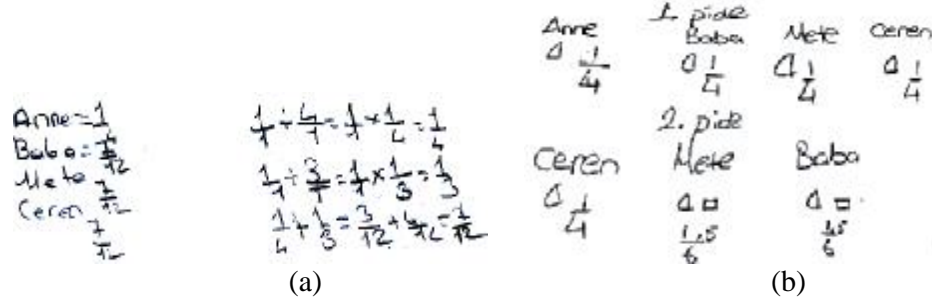 Anne = 1/4
Baba = 7/12
Mete 7/12
Ceren 7/12
1/1 ÷ 4/1 = 1/1 × 1/4 = 1/4
1/1 ÷ 3/1 = 1/1 × 1/3 = 1/3
1/4 + 1/3 = 3/12 + 4/12 = 7/12
(a)
1. pide
Anne Baba Mete Ceren
1/4 1/4 1/4 1/4
2. pide
Ceren Mete Baba
1/4 1,5/6 1,5/6
(b)